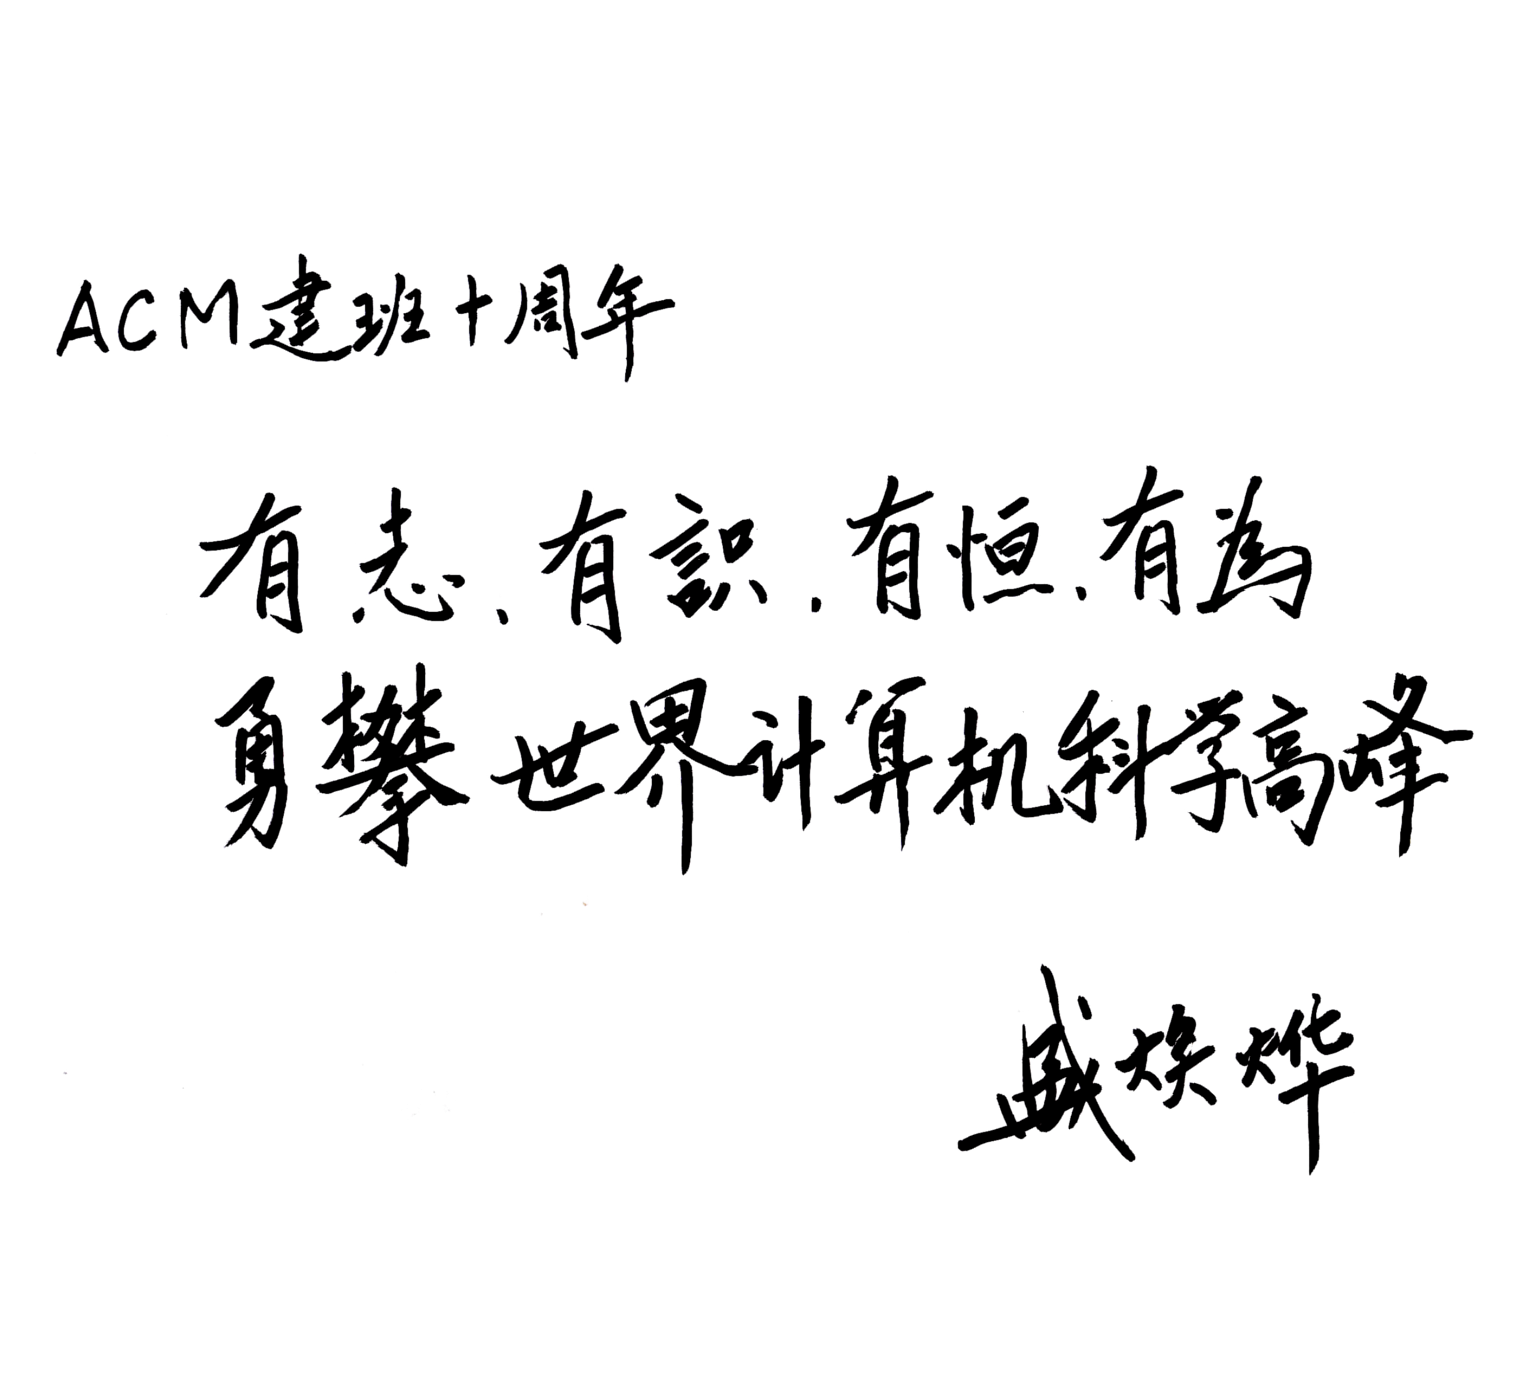 ACM建班十周年
有志、有識、有恒、有為
勇攀世界计算机科学高峰
盛焕烨